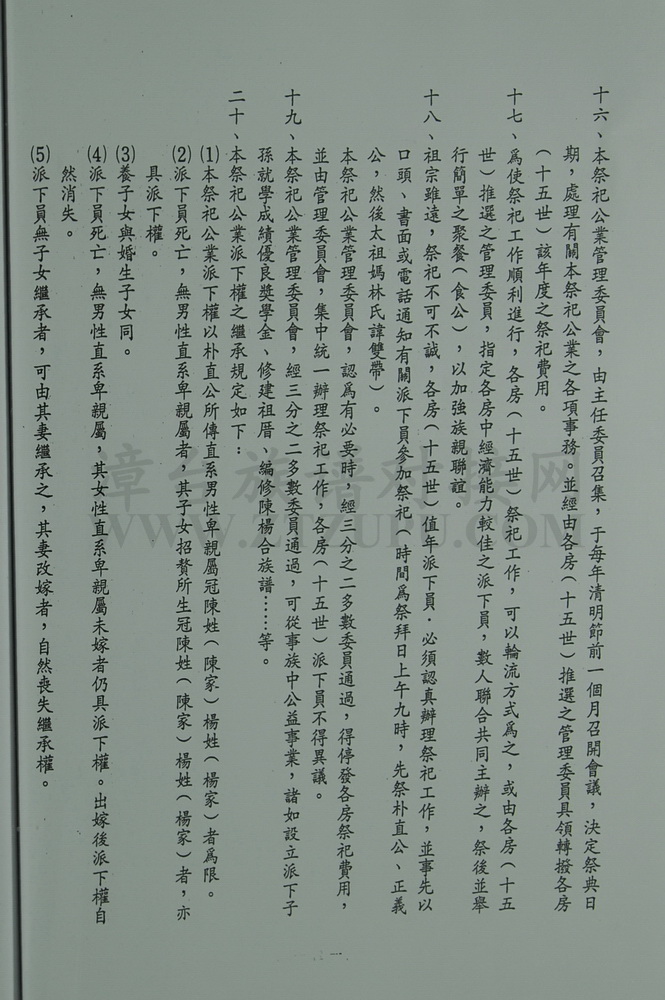 十六、本祭祀公業管理委員會，由主任委員召集，于每年清明節前一個月召開會議，決定祭典日
期，處理有關本祭祀公業之各項事務。並經由各房（十五世）推選之管理委員具領轉撥各房
（十五世）該年度之祭祀費用。
十七、爲使祭祀工作順利進行，各房（十五世）祭祀工作，可以輪流方式爲之，或由各房（十五
世）推選之管理委員，指定各房中經濟能力較佳之派下員，數人聯合共同主辦之，祭後並舉
行簡單之聚餐（食公），以加強族親聯誼。
十八、祖宗雖遠，祭祀不可不誠，各房（十五世）值年派下員．必須認真辦理祭祀工作，並事先以
口頭、書面或電話通知有關派下員參加祭祀（時間爲祭拜日上午九時，先祭朴直公、正義
公，然後太祖媽林氏諱雙帶）。
本祭祀公業管理委員會，認爲有必要時，經三分之二多數委員通過，得停發各房祭祀費用，
並由管理委員會，集中統一辦理祭祀工作，各房（十五世）派下員不得異議。
十九、本祭祀公業管理委員會，經三分之二多數委員通過，可從事族中公益事業，諸如設立派下子
孫就學成績優良獎學金、修建祖厝 編修陳楊合族譜……等。
二十、本祭祀公業派下權之繼承規定如下：
⑴本祭祀公業派下權以朴直公所傳直系男性卑親屬冠陳姓（陳家）楊姓（楊家）者爲限。
⑵派下員死亡，無男性直系卑親屬者，其子女招贅所生冠陳姓（陳家）楊姓（楊家）者，亦
具派下權。
⑶養子女與婚生子女同。
⑷派下員死亡，無男性直系卑親屬，其女性直系卑親屬未嫁者仍具派下權。出嫁後派下權自
然消失。
⑸派下員無子女繼承者，可由其妻繼承之，其妻改嫁者，自然喪失繼承權。
漳台族譜對接网
WWW.ZTZUPU.COM